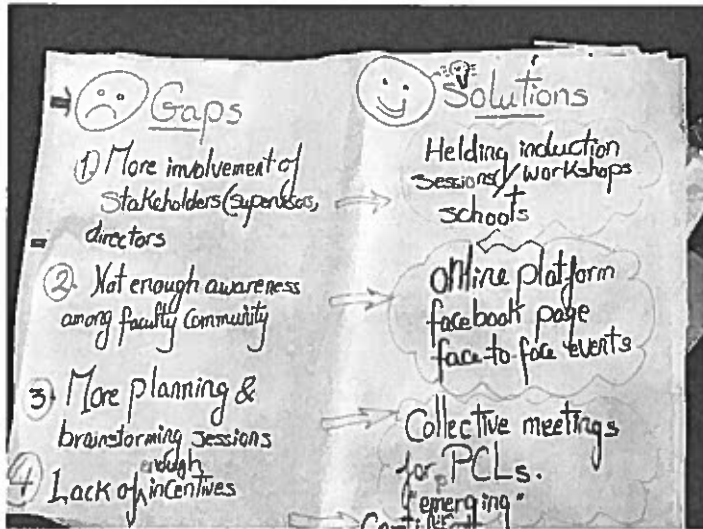 Gaps
1) More involvement of
Stakeholders (supervisors,
directors
2. Not enough awareness
among faculty community
3. More planning &
brainstorming sessions
4 Lack of enough incentives
Solutions
Helding induction
sessions/workshops
+
schools
online platform
facebook page
face-to-face events
Collective meetings
for PCLs.
"emerging"